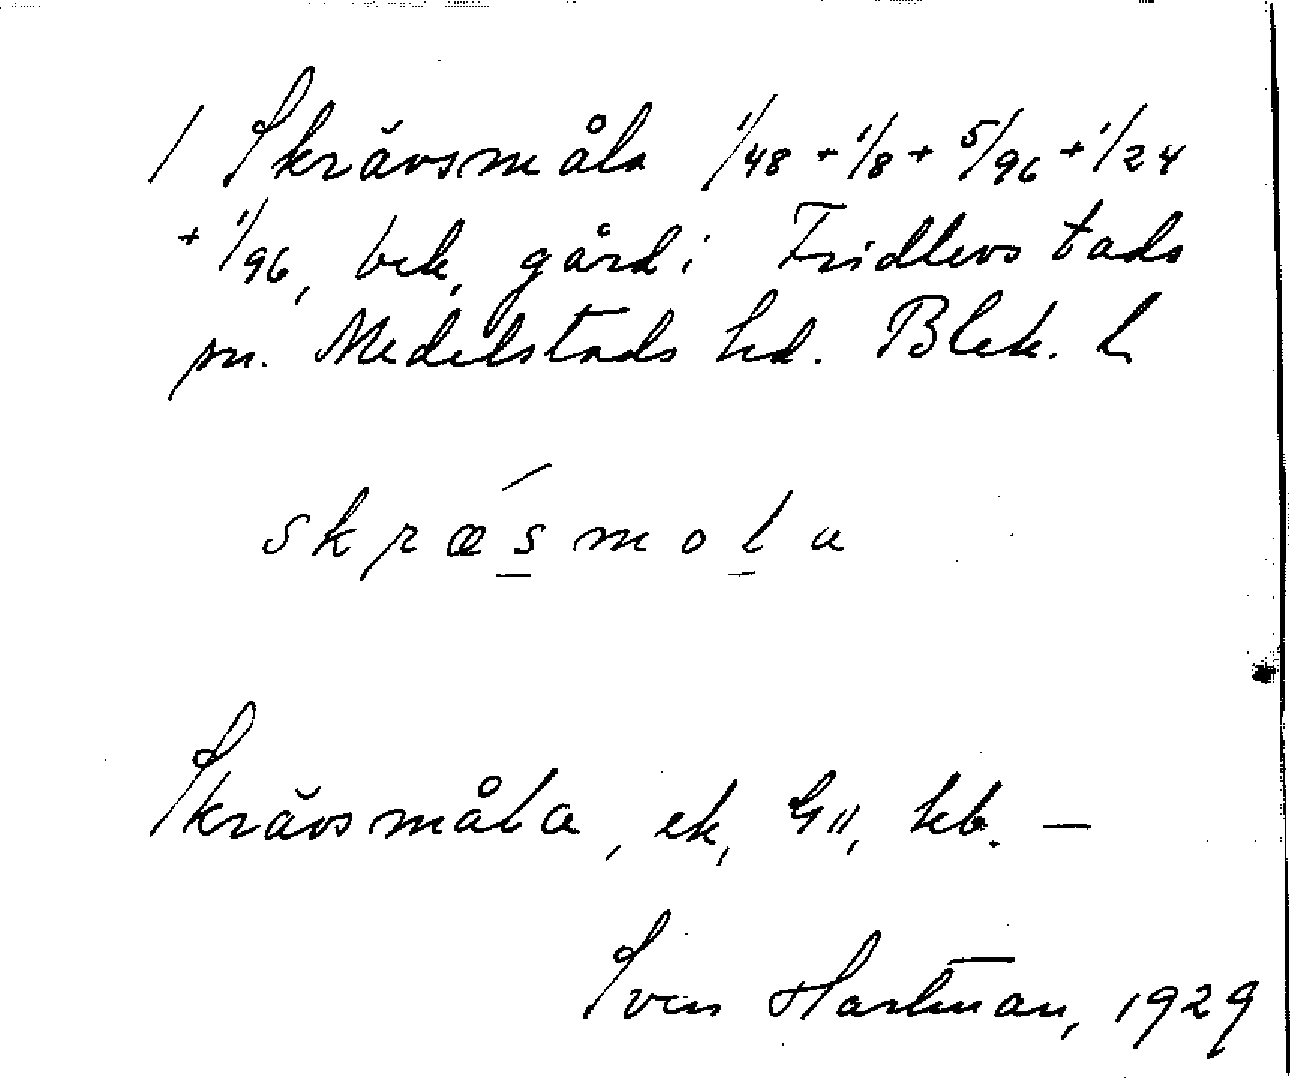 / Skrävsmåla 1/48 + 1/8 + 5/96 + 1/24
+ 1/96, bek, gård i Fridlevstads
sn. Medelstads hd. Blek. L
skræsmola
Skrävsmåla, ek, G11, hb. —
Sven Hartman, 1929